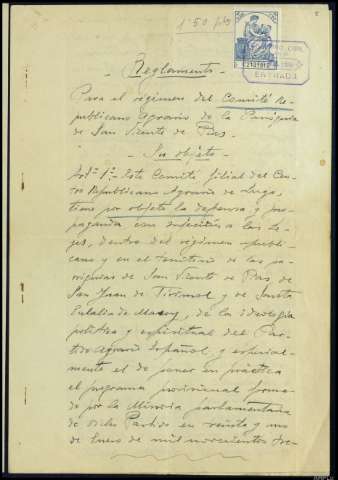 1'50 pts
ENTRADA
- Reglamento -
Para el régimen del Comité Re-
publicano Agrario de la Parroquia
de San Vicente de Pias.
- Su objeto -
Art.º 1º.- Este Comité filial del Cen-
tro Republicano Agrario de Lugo,
tiene por objeto la defensa y pro-
paganda con sujeción a las le-
yes, dentro del régimen republi-
cano y en el territorio de las pa-
rroquias de San Vicente de Pias, de
San Juan de Tirimol y de Santa
Eulalia de Macoy, de la ideología
política y espiritual del Par-
tido Agrario Español, y especial-
mente el de poner en práctica
el programa provisional forma-
do por la Minoria parlamentaria
de dicho Partido en treinta y uno
de Enero de mil novecientos tre-